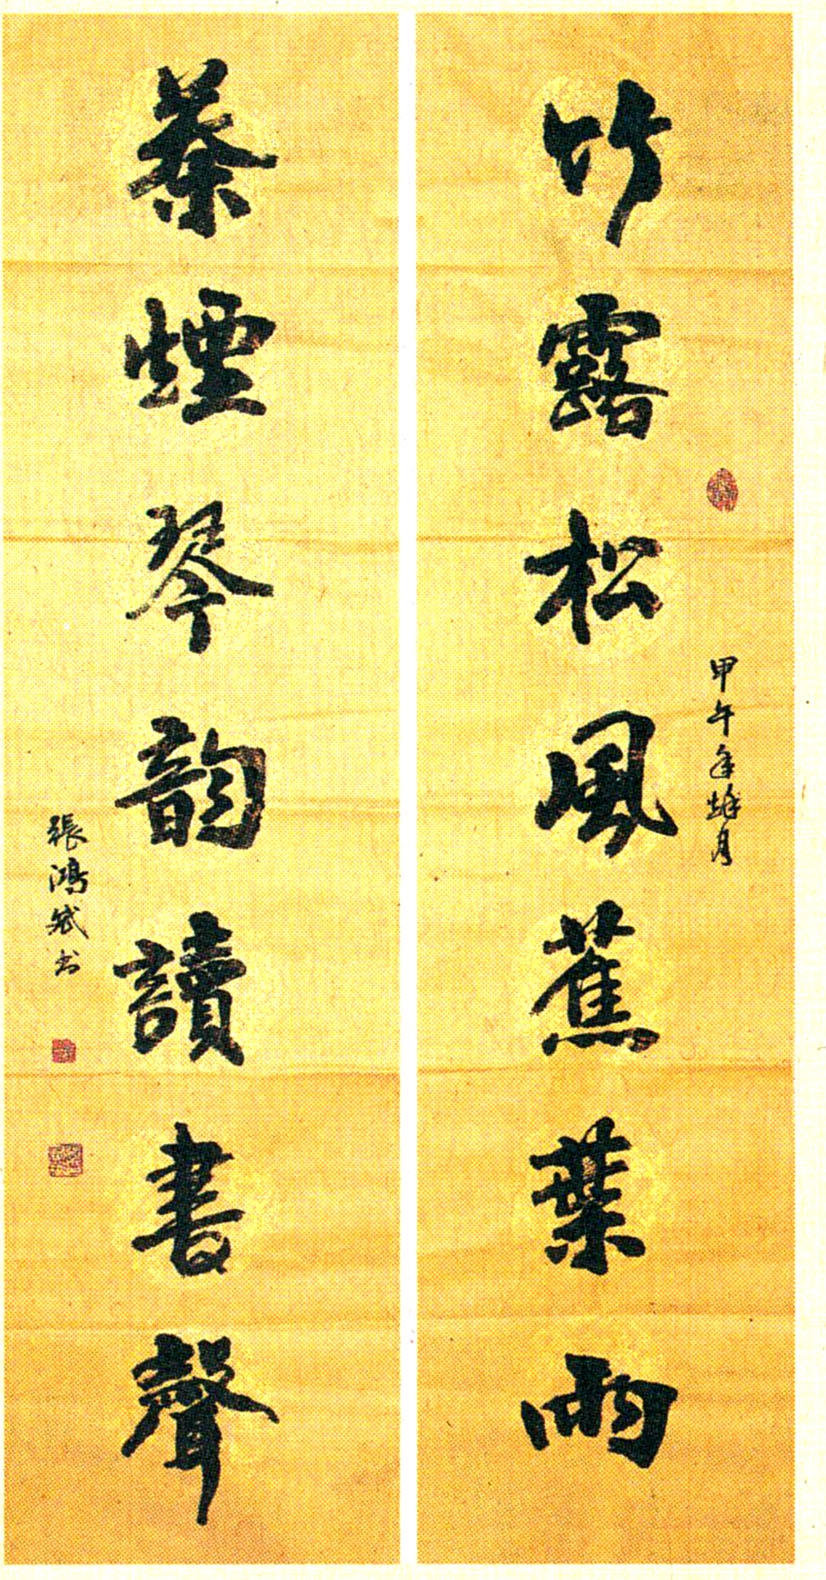 竹露松風蕉葉雨
甲午年 月
茶煙琴韻讀書聲
張鴻斌书